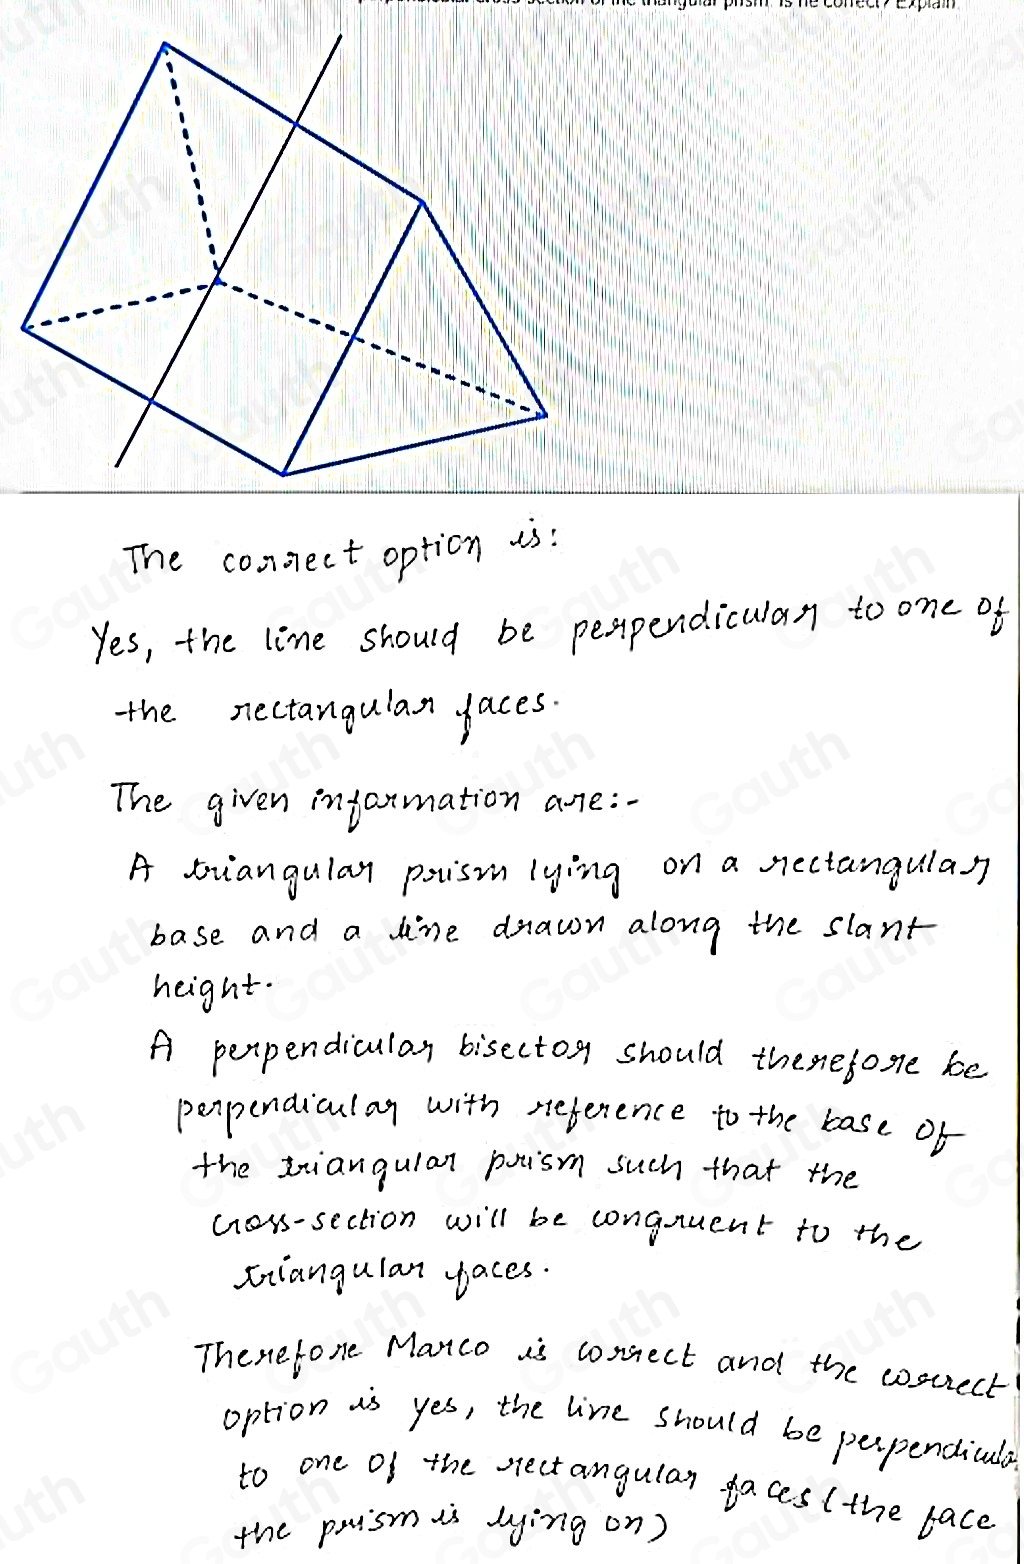 perpendicular cross-section of the triangular prism. Is he correct? Explain.
The correct option is:
Yes, the line should be perpendicular to one of
the rectangular faces.
The given information are:-
A triangular prism lying on a rectangular
base and a line drawn along the slant
height.
A perpendicular bisector should therefore be
perpendicular with reference to the base of
the triangular prism such that the
cross-section will be congruent to the
triangular faces.
Therefore Marco is correct and the correct
option is yes, the line should be perpendicula
to one of the rectangular faces (the face
the prism is lying on)
Gauth